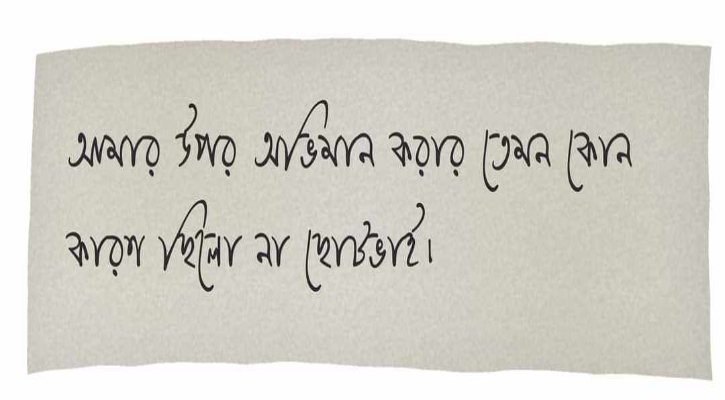 আমার উপর অভিমান করার তেমন কোন
কারণ ছিলো না ছোটভাই।